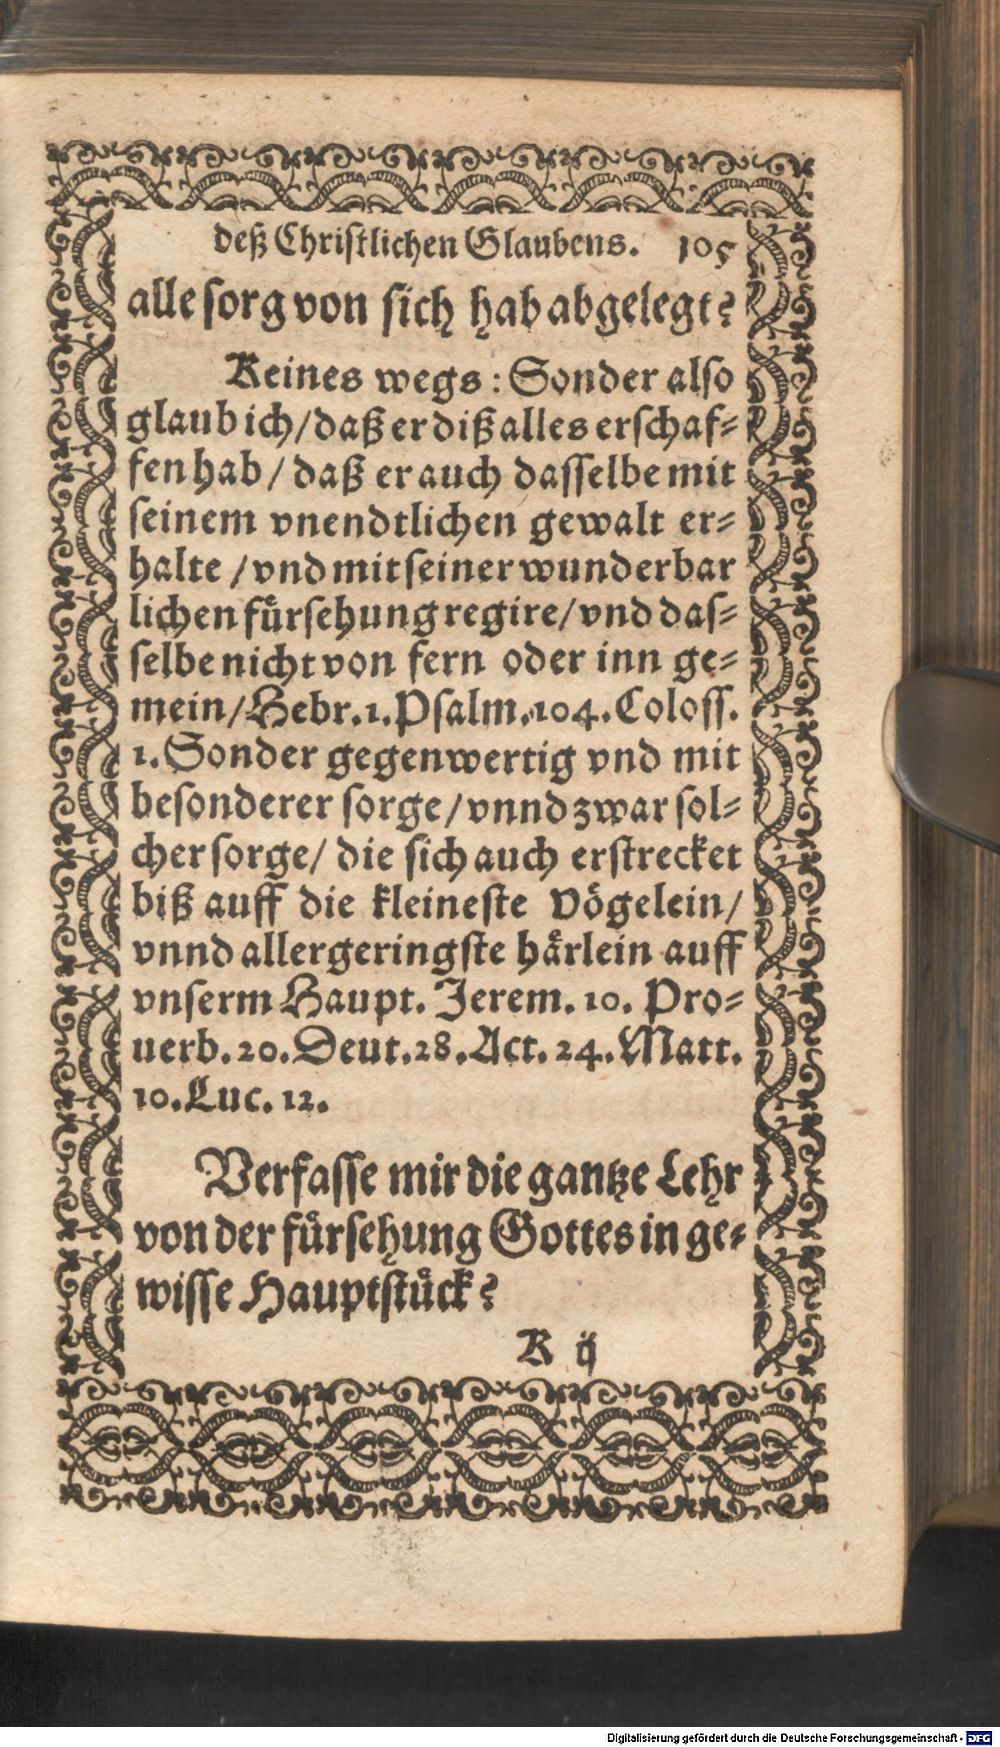 deß Christlichen Glaubens. 105
alle sorg von sich hab abgelegt?
Keines wegs: Sonder also
glaub ich/ daß er diß alles erschaf-
fen hab/ daß er auch dasselbe mit
seinem vnendtlichen gewalt er-
halte/ vnd mit seiner wunderbar
lichen fuͤrsehung regire/ vnd das-
selbe nicht von fern oder inn ge-
mein/ Hebr. 1. Psalm. 104. Coloss.
1. Sonder gegenwertig vnd mit
besonderer sorge/ vnnd zwar sol-
cher sorge/ die sich auch erstrecket
biß auff die kleineste Voͤgelein/
vnnd allergeringste haͤrlein auff
vnserm Haupt. Jerem. 10. Pro-
uerb. 20. Deut. 28. Act. 24. Matt.
10. Luc. 12.
Verfasse mir die gantze Lehr
von der fuͤrsehung Gottes in ge-
wisse Hauptstuͤck?
K ij
Digitalisierung gefördert durch die Deutsche Forschungsgemeinschaft - DFG